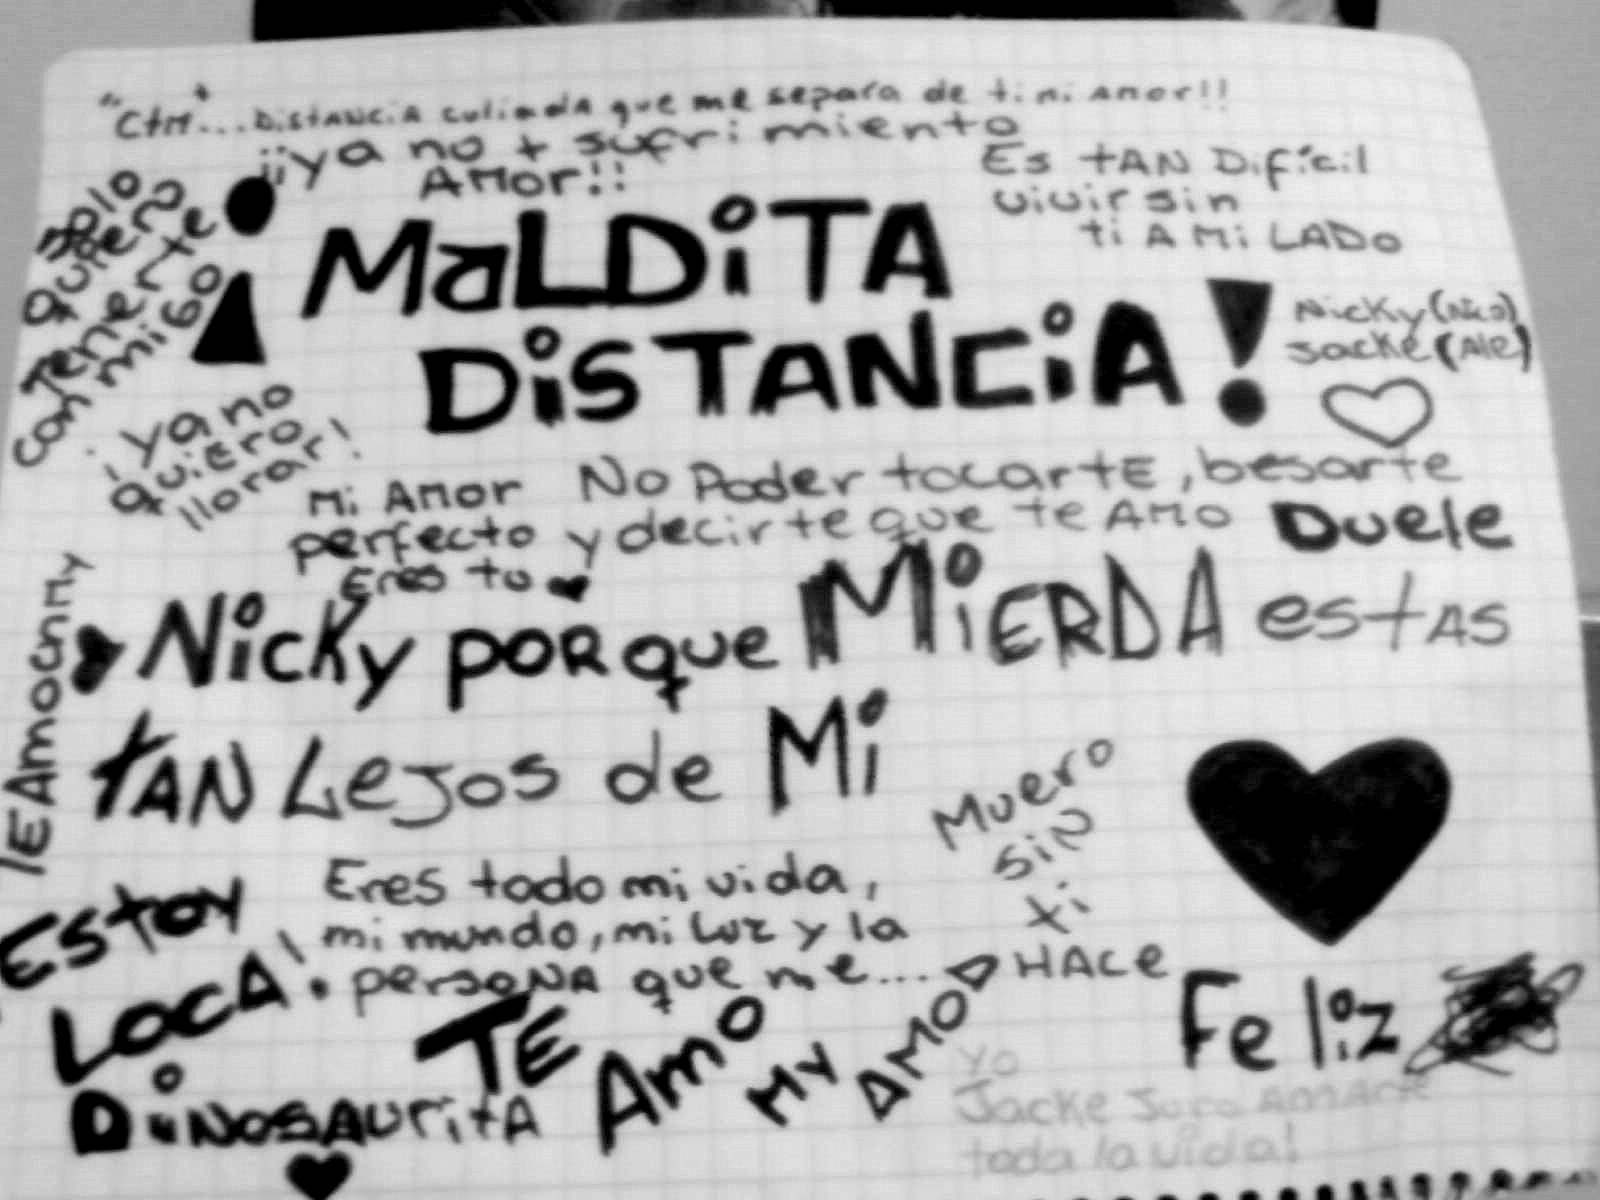 "Ctm"... Distancia culiada que me separa de ti mi amor!!
¡¡ya no + sufrimiento
AMor!!
Es tAN Dificil
vivir sin
ti A Mi LADo
solo
quiero
Tenerte
conmigo
¡MaLDiTA
DiSTANCiA!
Nicky (Nico)
Jacke (Ale)
¡ya no
quiero
llorar!
Mi Amor
perfecto
Eres tu
No Poder tocartE, besarte
y decirte que te AMo Duele
Nicky porque MiERDA estAS
tAN Lejos de Mi
TEAmo
Muero
sin
ti
Estoy
LocA!
Eres todo mi vida,
mi mundo, mi luz y la
persoNA que me....
HACe
Feliz
TE
Amo
My
AMOR
DiNosAuritA
yo
Jacke Juro AMARte
toda la vida!